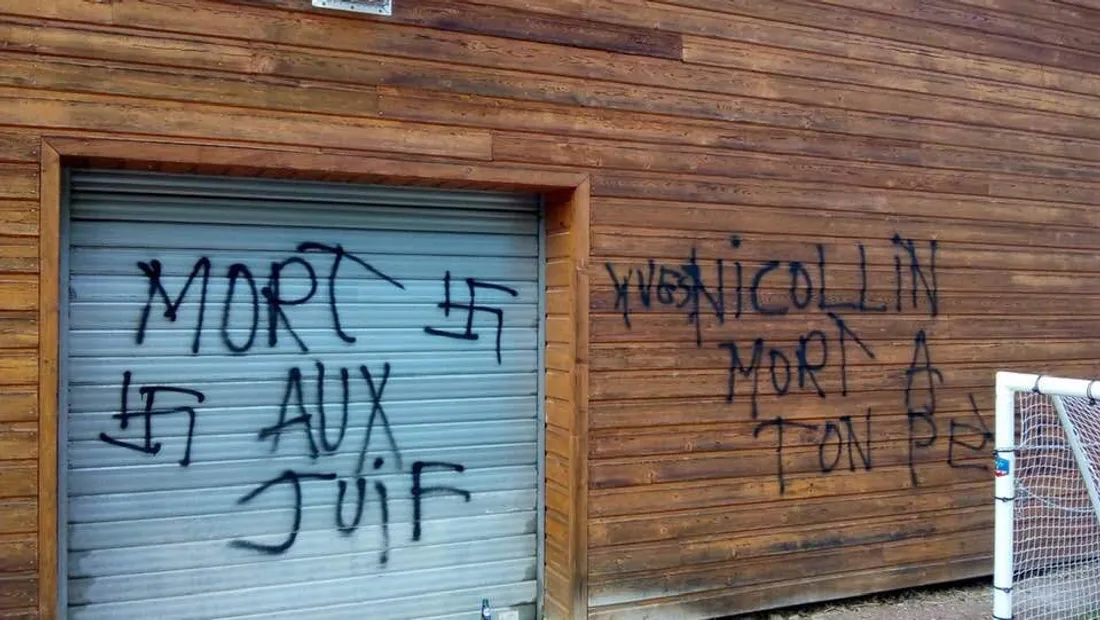 MORT
AUX
JUiF
YVES NiCOLLiN
MORT A
TON PÈ